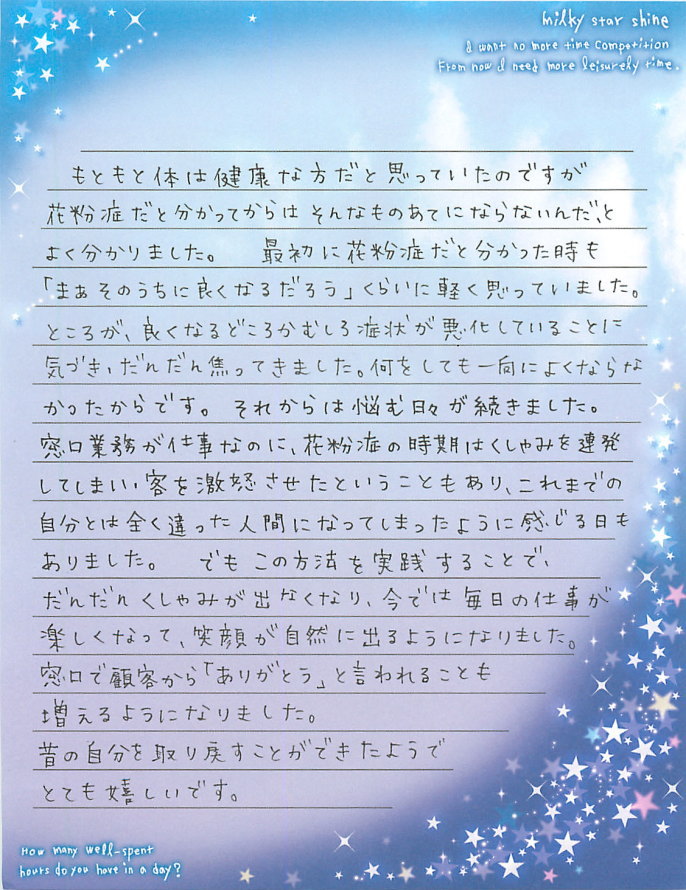 milky star shine
I want no more time competition
From now I need more leisurely time.
もともと体は健康な方だと思っていたのですが
花粉症だと分かってからはそんなものあてにならないんだ、と
よく分かりました。 最初に花粉症だと分かった時も
「まぁそのうちに良くなるだろう」くらいに軽く思っていました。
ところが、良くなるどころかむしろ症状が悪化していることに
気づき、だんだん焦ってきました。何をしても一向によくならな
かったからです。それからは悩む日々が続きました。
窓口業務が仕事なのに、花粉症の時期はくしゃみを連発
してしまい、客を激怒させたということもあり、これまでの
自分とは全く違った人間になってしまったように感じる日も
ありました。 でもこの方法を実践することで、
だんだんくしゃみが出なくなり、今では毎日の仕事が
楽しくなって、笑顔が自然に出るようになりました。
窓口で顧客から「ありがとう」と言われることも
増えるようになりました。
昔の自分を取り戻すことができたようで
とても嬉しいです。
How many well-spent
hours do you have in a day?